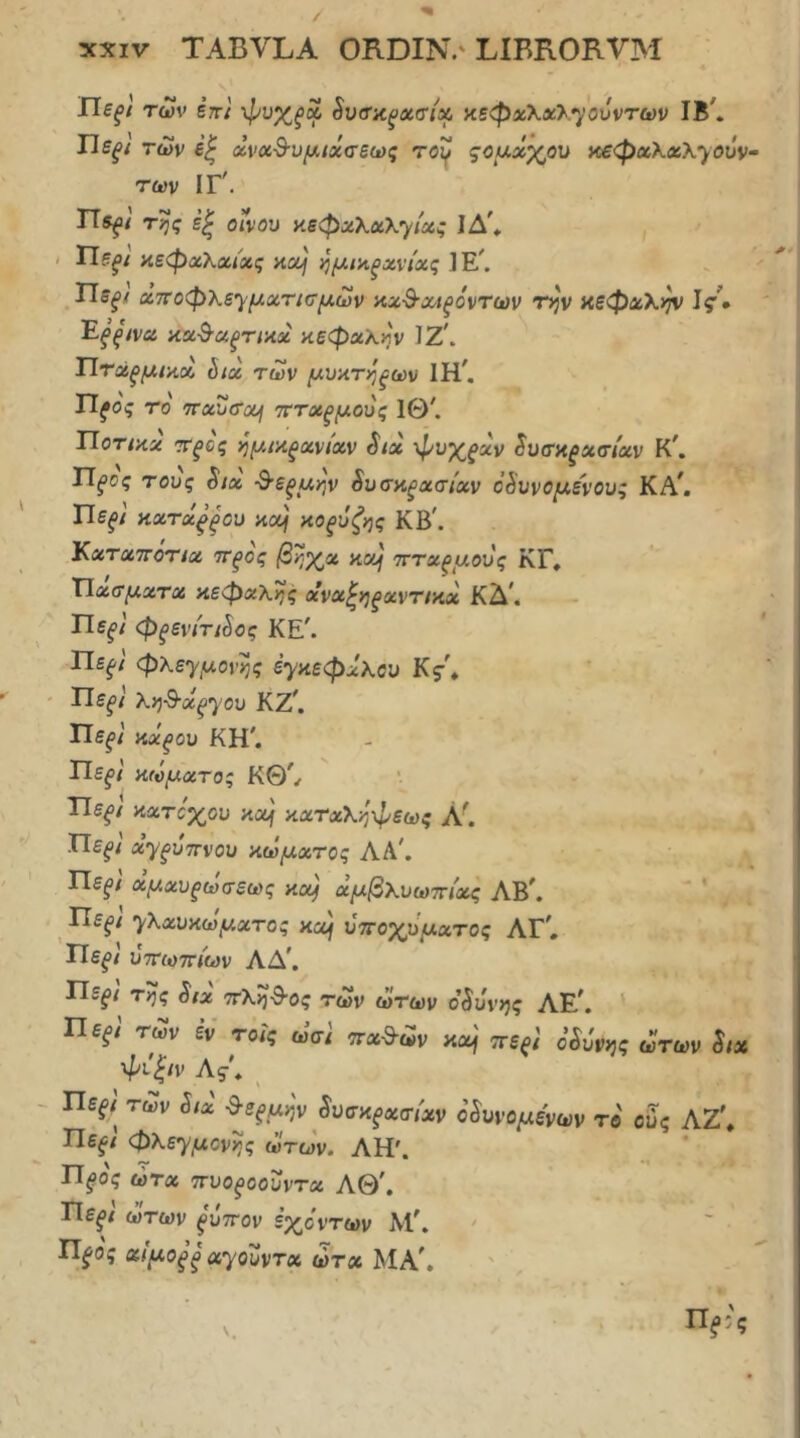 xxiv TABVLA ORDIN. LIBRORVM
Περὶ τῶν ἐπὶ ψυχρᾷ δυσκρασίᾳ κεφαλαλγούντων ΙΒ΄.
Περὶ τῶν ἐξ ἀναθυμιάσεως τοῦ ϛομάχου κεφαλαλγούν-
των ΙΓ΄.
Περὶ τῆς ἐξ οἴνου κεφαλαλγίας ΙΔ΄.
Περὶ κεφαλαίας καὶ ἡμικρανίας ΙΕ΄.
Περὶ ἀποφλεγματισμῶν καθαιρόντων τὴν κεφαλὴν Ιϛ΄.
Ἔῤῥινα καθαρτικὰ κεφαλὴν ΙΖ΄.
Πταρμικὰ διὰ τῶν μυκτήρων ΙΗ΄.
Πρὸς τὸ παῦσαι πταρμοὺς ΙΘ΄.
Ποτικὰ πρὸς ἡμικρανίαν διὰ ψυχρὰν δυσκρασίαν Κ΄.
Πρὸς τοὺς διὰ θερμὴν δυσκρασίαν ὀδυνομένους ΚΑ΄.
Περὶ κατάῤῥου καὶ κορύζης ΚΒ΄.
Καταπότια πρὸς βῆχα καὶ πταρμοὺς ΚΓ.
Πάσματα κεφαλῆς ἀναξηραντικὰ ΚΔ΄.
Περὶ φρενίτιδος ΚΕ΄.
Περὶ φλεγμονῆς ἐγκεφάλου Κϛ΄.
Περὶ ληθάργου ΚΖ΄.
Περὶ κάρου ΚΗ΄.
Περὶ κώματος ΚΘ΄.
Περὶ κατόχου καὶ καταλήψεως Λ΄.
Περὶ ἀγρύπνου κώματος ΛΑ΄.
Περὶ ἀμαυρώσεως καὶ ἀμβλυωπίας ΛΒ΄.
Περὶ γλαυκώματος καὶ ὑποχύματος ΛΓ΄.
Περὶ ὑπωπίων ΛΔ΄.
Περὶ τῆς διὰ πλῆθος τῶν ὤτων ὀδύνης ΛΕ΄.
Περὶ τῶν ἐν τοῖς ὠσὶ παθῶν καὶ περὶ ὀδύνης ὤτων δια
ψύξιν Λϛ΄.
Περὶ τῶν διὰ θερμὴν δυσκρασίαν ὀδυνομένων τὸ οὖς ΛΖ΄.
Περὶ φλεγμονῆς ὤτων. ΛΗ΄.
Πρὸς ὦτα πυοροοῦντα ΛΘ΄.
Περὶ ὤτων ῥύπον ἐχόντων Μ΄.
Πρὸς αἱμοῤῥαγοῦντα ὦτα ΜΑ΄.
Πρὸς